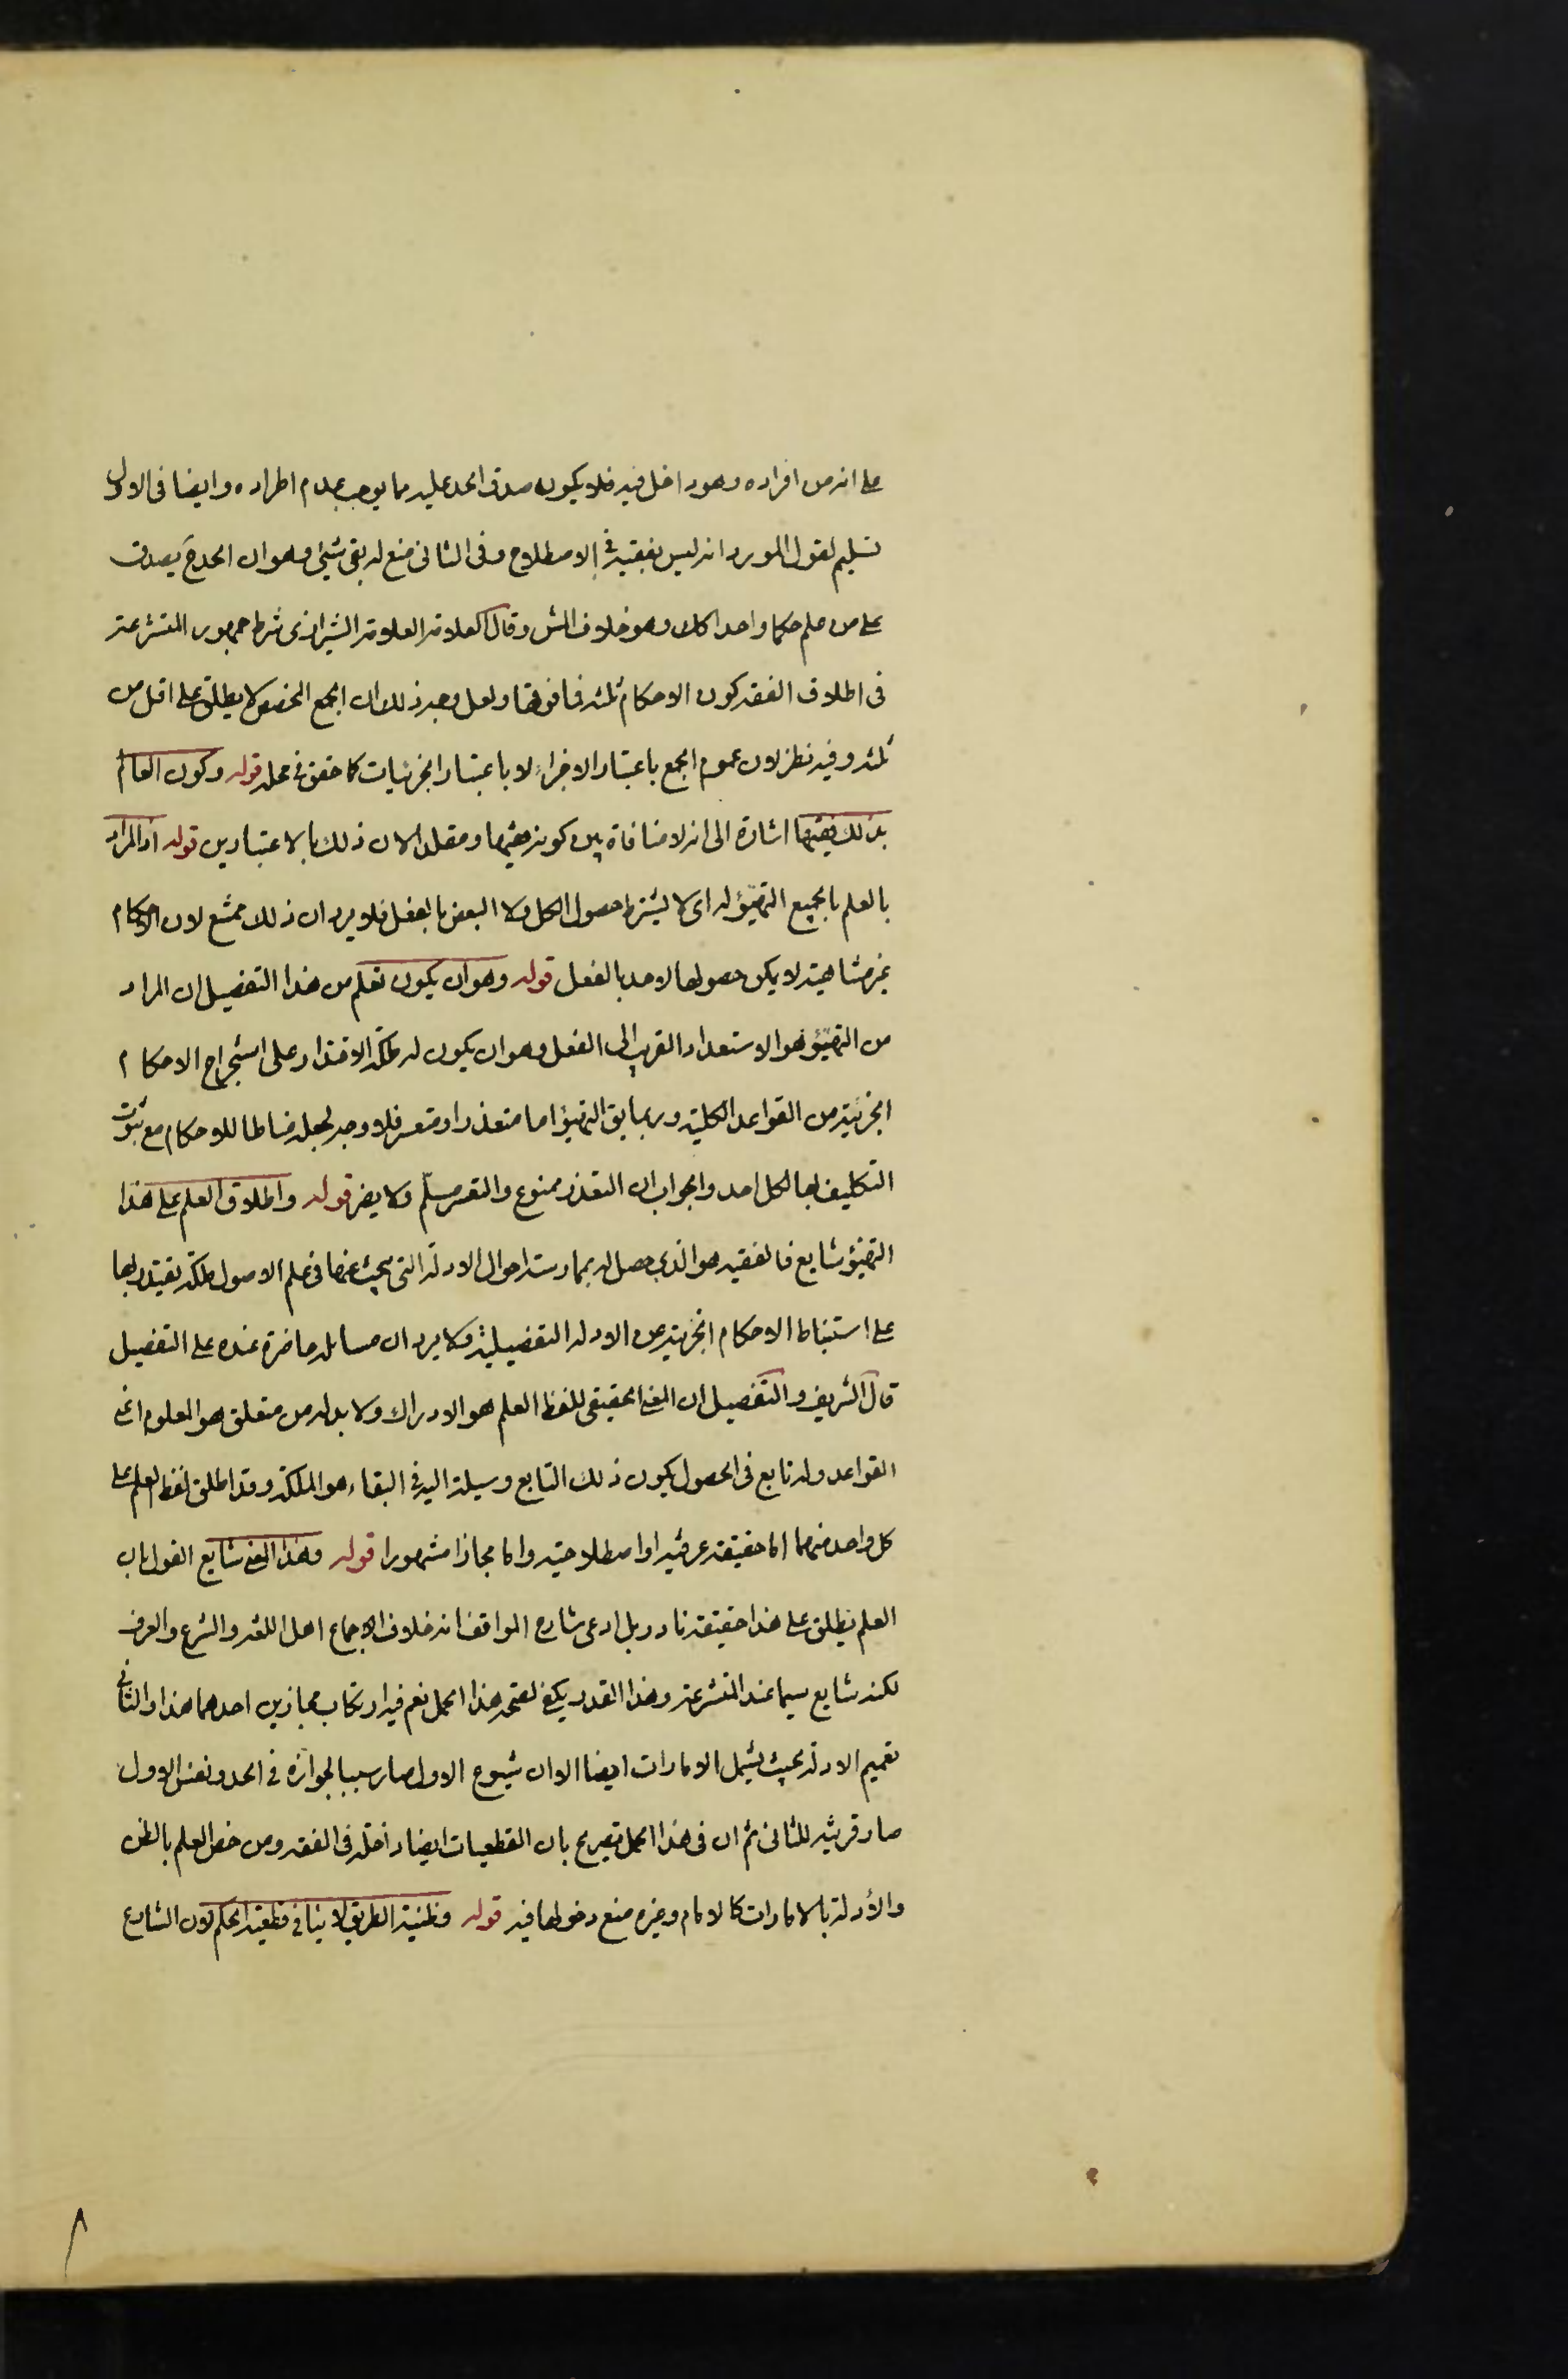 على انه من افراده وهو داخل فيه فلا يكون صدق الحد عليه مما يوجب عدم اطراده وايضا فى الاول
تسليم لقول المورد انه ليس بفقيه فى الاصطلاح وفى الثانى منع له بقى شيئ وهو ان الحد ح يصدق
على من علم حكما واحدا كك وهو خلاف المش وقال العلامة العلامة الشيرازى شرط جمهور المتشرعة
فى اطلاق الفقه كون الاحكام ثلثه فما فوقها ولعل وجه ذلك ان الجمع المخصص لا يطلق على اقل من
ثلثه وفيه نظر لان عموم الجمع باعتبار الاجزاء لا باعتبار الجزئيات كما حقق فى محله قوله وكون العالم
بذلك فقيها اشارة الى انه لا منافاة بين كونه فقيها ومقلدا لان ذلك بالاعتبارين قوله اذ المراد
بالعلم بالجميع التهيؤ له اى لا يشترط حصول الكل ولا البعض بالفعل فلا يرد ان ذلك ممتنع لان الاحكام
غير متناهية لا يمكن حصولها لاحد بالفعل قوله وهو ان يكون تعلم من هذا التفصيل ان المراد
من التهيؤ هو الاستعداد القريب الى الفعل وهو ان يكون له ملكة الاقتدار على استخراج الاحكام
الجزئية من القواعد الكلية وربما يق التهيؤ اما متعذر او متعسر فلا وجه لجعله مناطا للاحكام مع ثبوت
التكليف بها لكل احد والجواب ان التعذر ممنوع والتعسر مسلّم ولا يضر قوله واطلاق العلم على هذا
التهيؤ شايع فالفقيه هو الذى حصل له بممارسة احوال الادلة التى يبحث عنها فى علم الاصول ملكة يقتدر بها
على استنباط الاحكام الجزئية عن الادلة التفصيلية ولا يرد ان مسائله حاضرة عنده على التفصيل
قال الشريف والتفصيل ان المعنى الحقيقى للفظ العلم هو الادراك ولا بد له من متعلق هو المعلوم اعنى
القواعد وله تابع فى الحصول يكون ذلك التابع وسيلة اليه فى البقاء هو الملكة وقد اطلق لفظ العلم على
كل واحد منهما اما حقيقة عرفية او اصطلاحية واما مجازا مشهورا قوله وهذا المعنى شايع القول بان
العلم يطلق على هذا حقيقة نادر بل ادعى شارح المواقف انه خلاف اجماع اهل اللغه والشرع والعرف
لكنه شايع سيما عند المتشرعة وهذا القدر يكفى لصحة هذا الحمل نعم فيه ارتكاب مجازين احدهما هذا والثانى
تعميم الادلة بحيث يشمل الامارات ايضا الا ان شيوع الاول صار سببا لجوازه فى الحد ونفس الاول
صار قرينة للثانى ثم ان فى هذا الحمل تصريح بان القطعيات ايضا داخلة فى الفقه ومن خص العلم بالظن
والأدلة بالامارات كالامام وغيره منع دخولها فيه قوله وظنية الطريق لا ينافى قطعية الحكم لان الشارع